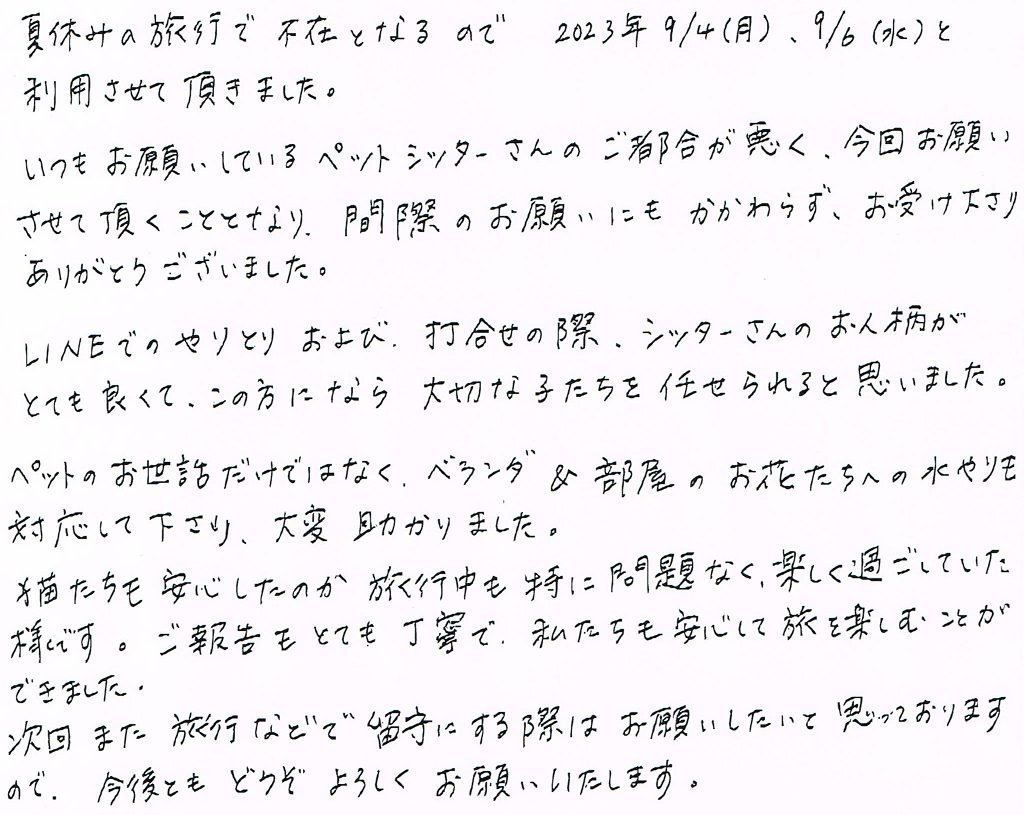 夏休みの旅行で不在となるので 2023年9/4(月)、9/6(水)と
利用させて頂きました。
いつもお願いしているペットシッターさんのご都合が悪く、今回お願い
させて頂くこととなり、間際のお願いにもかかわらず、お受け下さり
ありがとうございました。
LINEでのやりとりおよび、打合せの際、シッターさんのお人柄が
とても良くて、この方になら大切な子たちを任せられると思いました。
ペットのお世話だけではなく、ベランダ&部屋のお花たちへの水やりも
対応して下さり、大変助かりました。
猫たちも安心したのか旅行中も特に問題なく、楽しく過ごしていた
様です。ご報告もとても丁寧で、私たちも安心して旅を楽しむことが
できました。
次回また旅行などで留守にする際はお願いしたいと思っております
ので、今後ともどうぞよろしくお願いいたします。